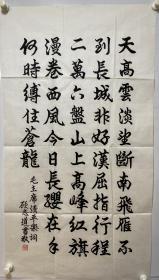 天高雲淡望斷南飛雁不
到長城非好漢屈指行程
二萬六盤山上高峰紅旗
漫卷西風今日長纓在手
何時縛住蒼龍
毛主席清平樂詞